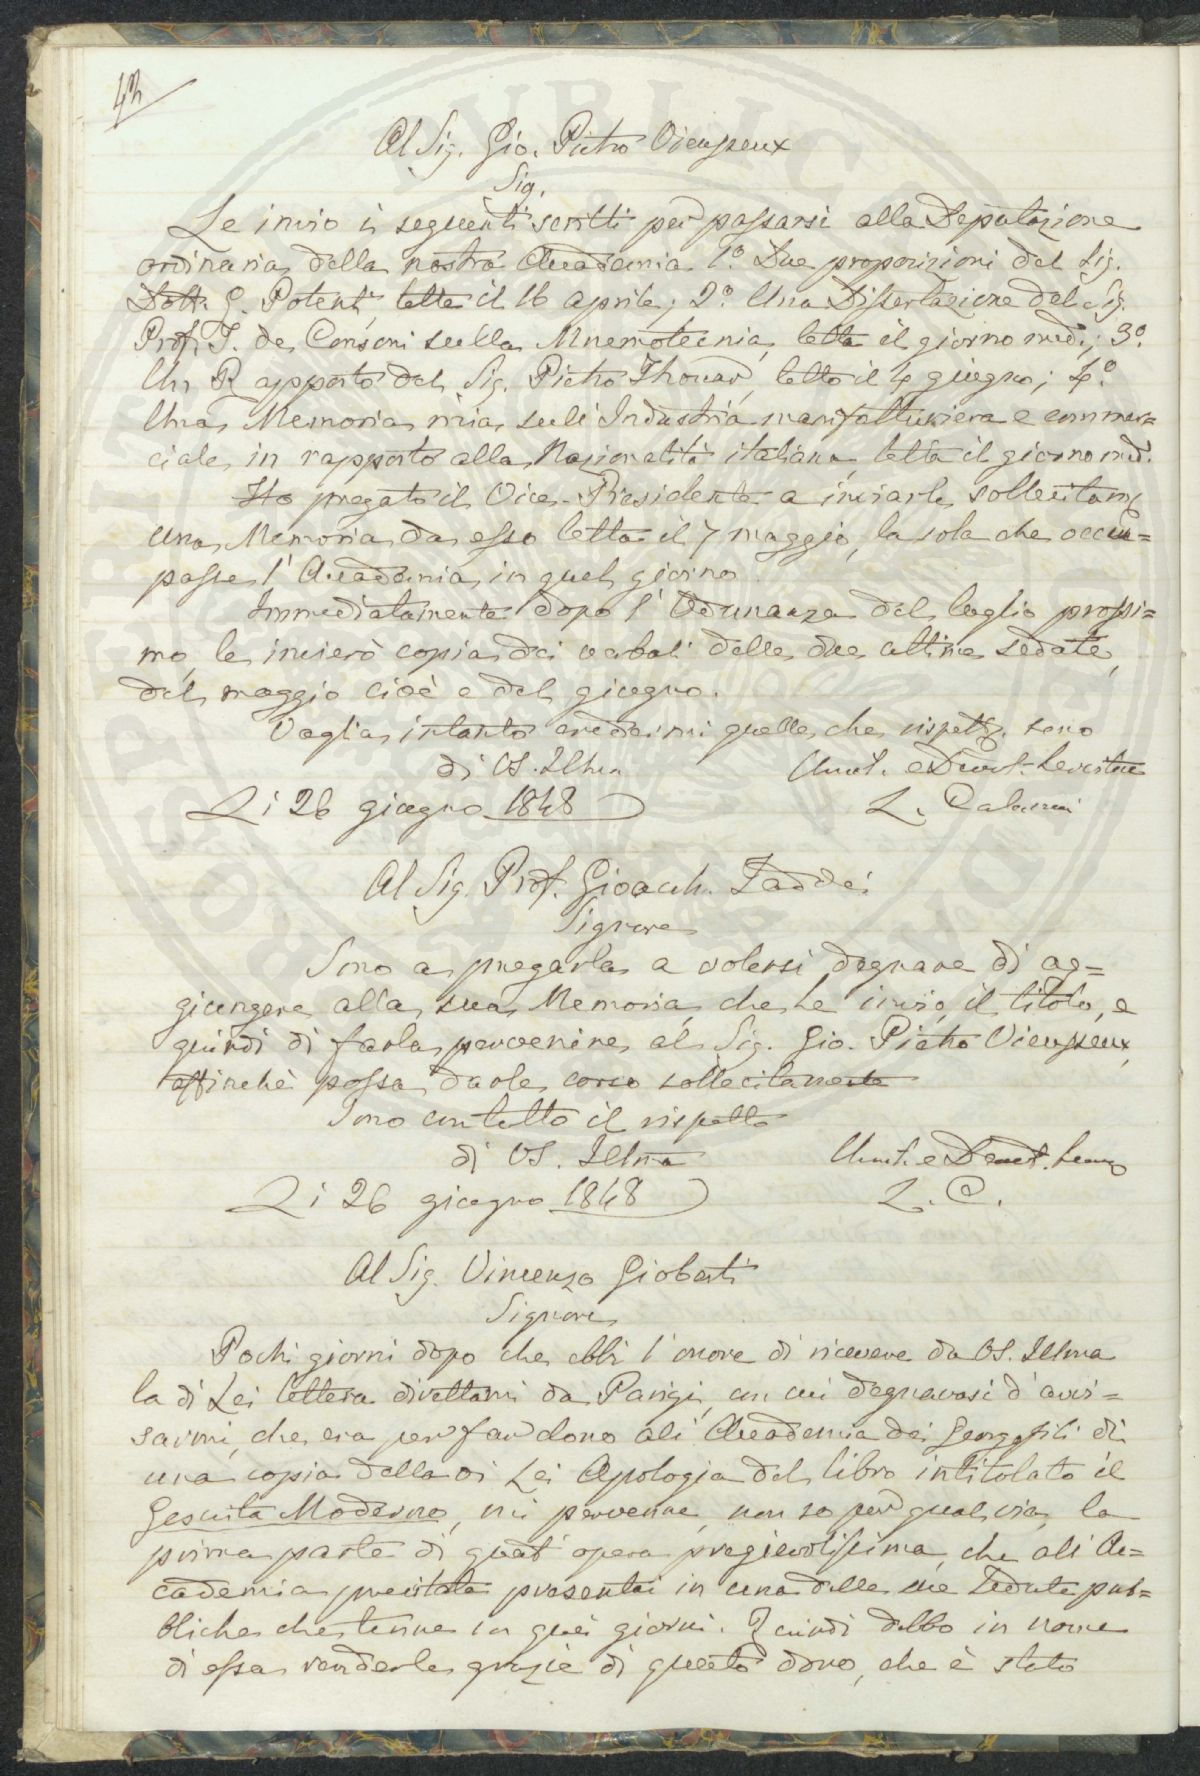 42
Al Sig. Gio. Pietro Vieusseux
Sig.
Le invio i seguenti scritti per passarsi alla Deputazione
ordinaria della nostra Accademia 1.° Due proposizioni del Sig.
Dott. G. Potenti, lette il 16 aprile; 2.° Una Dissertazione del Sig.
Prof. F. de Consoni sulla Mnemotecnia, letta il giorno med.; 3.°
Un Rapporto del Sig. Pietro Thouar, letto il 4 giugno; 4.°
Una Memoria mia sull'Industria manifatturiera e commer=
ciale in rapporto alla Nazionalità italiana letta il giorno med.
Ho pregato il Vice-Presidente a inviarle sollecitam.
una Memoria da esso letta il 7 maggio, la sola che occu=
passe l'Accademia in quel giorno.
Immediatamente dopo l'Adunanza del luglio prossi=
mo, le invierò copia dei verbali delle due ultime sedute,
del maggio cioè e del giugno.
Voglia intanto credermi quello che rispett. sono
di VS. Illma
Umil. e Devot. Servitore
Li 26 giugno 1848
L. Calamai
Al Sig. Prof. Gioacch. Taddei
Signore
Sono a pregarla a volersi degnare di ag=
giungere alla sua Memoria, che Le invio, il titolo, e
quindi di farla pervenire al Sig. Gio. Pietro Vieusseux,
affinchè possa darle corso sollecitamente
Sono con tutto il rispetto
di VS. Illma
Umil. e Devot. Serv.
Li 26 giugno 1848
L. C.
Al Sig. Vincenzo Gioberti
Signore
Pochi giorni dopo che ebbi l'onore di ricevere da VS. Illma
la di Lei lettera direttami da Parigi, con cui degnavasi d'avvi=
sarmi, che era per far dono all'Accademia dei Georgofili di
una copia della di Lei Apologia del libro intitolato il
Gesuita Moderno, mi pervenne, non so per qual via, la
prima parte di quest'opera pregievolissima, che all'Ac=
cademia precitata presentai in una delle sue Sedute pub=
bliche che tenne in quei giorni. Quindi debbo in nome
di essa renderle grazie di questo dono, che è stato